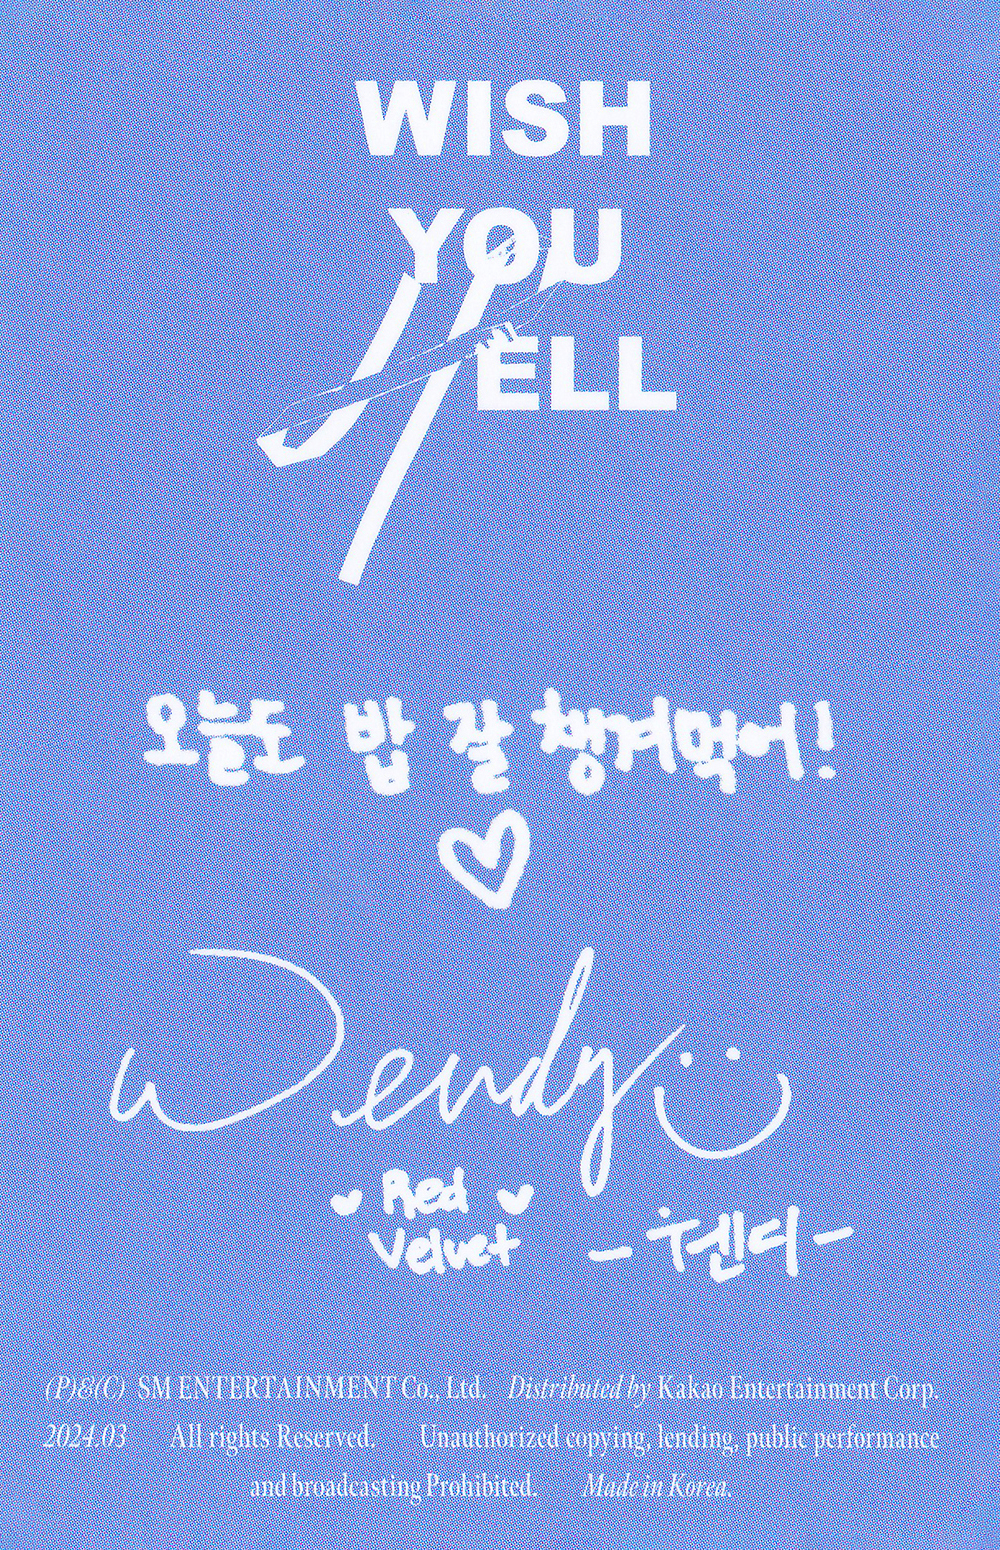 WISH
YOU
HELL
오늘도 밥 잘 챙겨먹어!
Wendy
Red
Velvet
- 웬디 -
(P)&(C) SM ENTERTAINMENT Co., Ltd. Distributed by Kakao Entertainment Corp.
2024.03 All rights Reserved. Unauthorized copying, lending, public performance
and broadcasting Prohibited. Made in Korea.